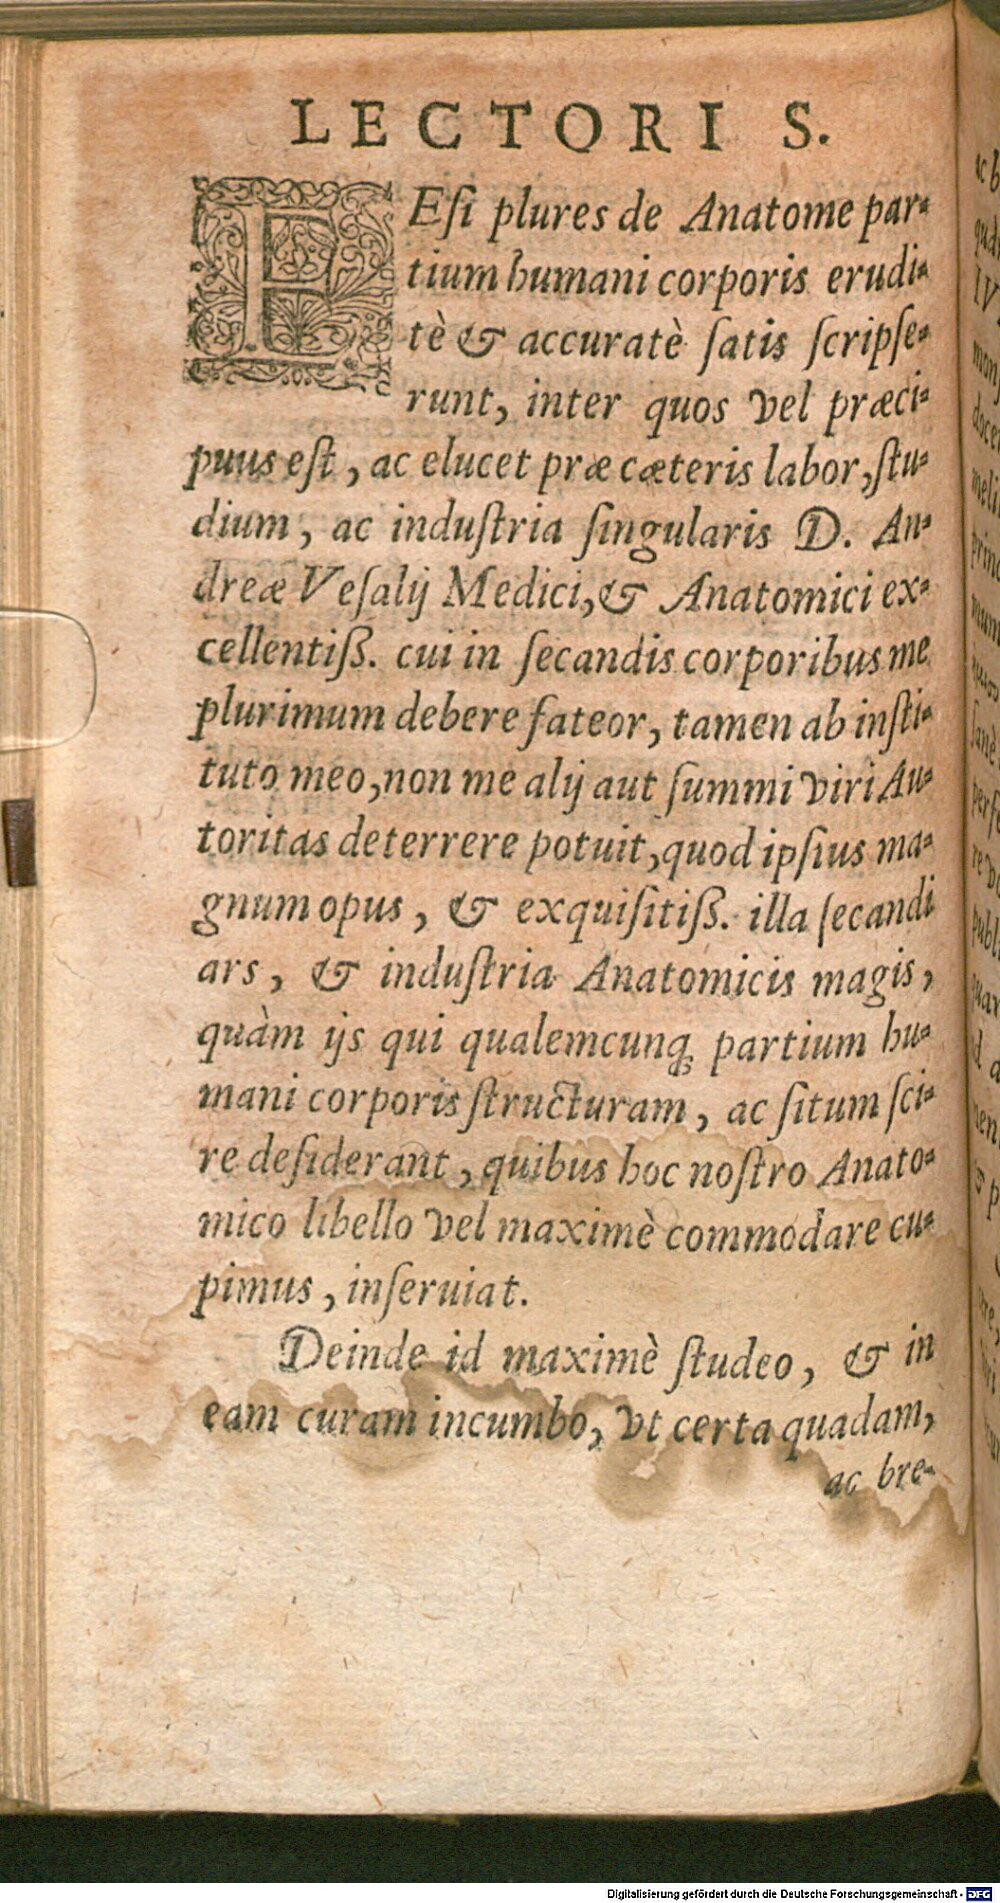 LECTORI S.
ESi plures de Anatome par-
tium humani corporis erudi-
tè & accuratè satis scripse-
runt, inter quos vel præci-
puus est, ac elucet præ cæteris labor, stu-
dium, ac industria singularis D. An-
dreæ Vesalij Medici, & Anatomici ex-
cellentiß. cui in secandis corporibus me
plurimum debere fateor, tamen ab insti-
tuto meo, non me alij aut summi viri Au-
toritas deterrere potuit, quod ipsius ma-
gnum opus, & exquisitiß. illa secandi
ars, & industria Anatomicis magis,
quàm ijs qui qualemcunq; partium hu-
mani corporis structuram, ac situm sci-
re desiderant, quibus hoc nostro Anato-
mico libello vel maximè commodare cu-
pimus, inseruiat.
Deinde id maximè studeo, & in
eam curam incumbo, vt certa quadam,
ac bre-
Digitalisierung gefördert durch die Deutsche Forschungsgemeinschaft - DFG